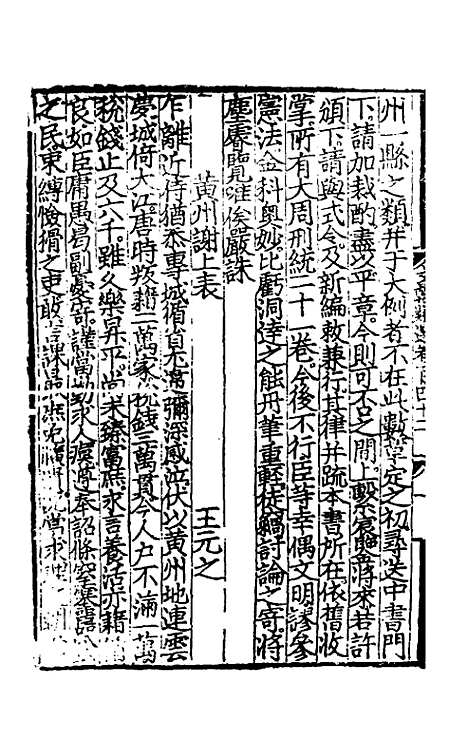 州一縣之類并于大例者不在此數草定之初尋送中書門
下請加裁酌盡以平章今則可不之間上繫宸聽蔣來若許
頒下請與式令及新編敕兼行其律并疏本書所在依舊收
掌所有大周刑統二十一卷今後不行臣等幸偶文明謬參
憲法金科奧妙比虧洞達之能丹筆重輕徒竊討論之寄將
塵睿覽唯俟嚴誅
黃州謝上表 王元之
乍離近侍猶忝專城循省尤深感泣伏以黃州地連雲
夢城倚大江唐時版籍二萬家稅錢三萬貫今人戶不滿一萬
稅錢止及六千雖久樂昇平尚未臻富庶求言養活亦籍
良如臣庸愚曷副憂寄謹當勤求人瘼遵奉詔條窒塞
之民束縛憸猾之吏敢言課